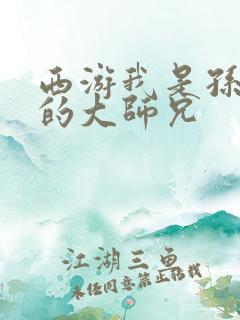 西游我是孙
的大师兄
江湖三鱼
未经同意禁止转载